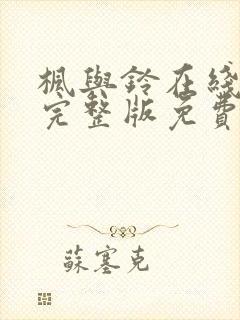 楓與鈴在綫
完整版免費
蘇塞克